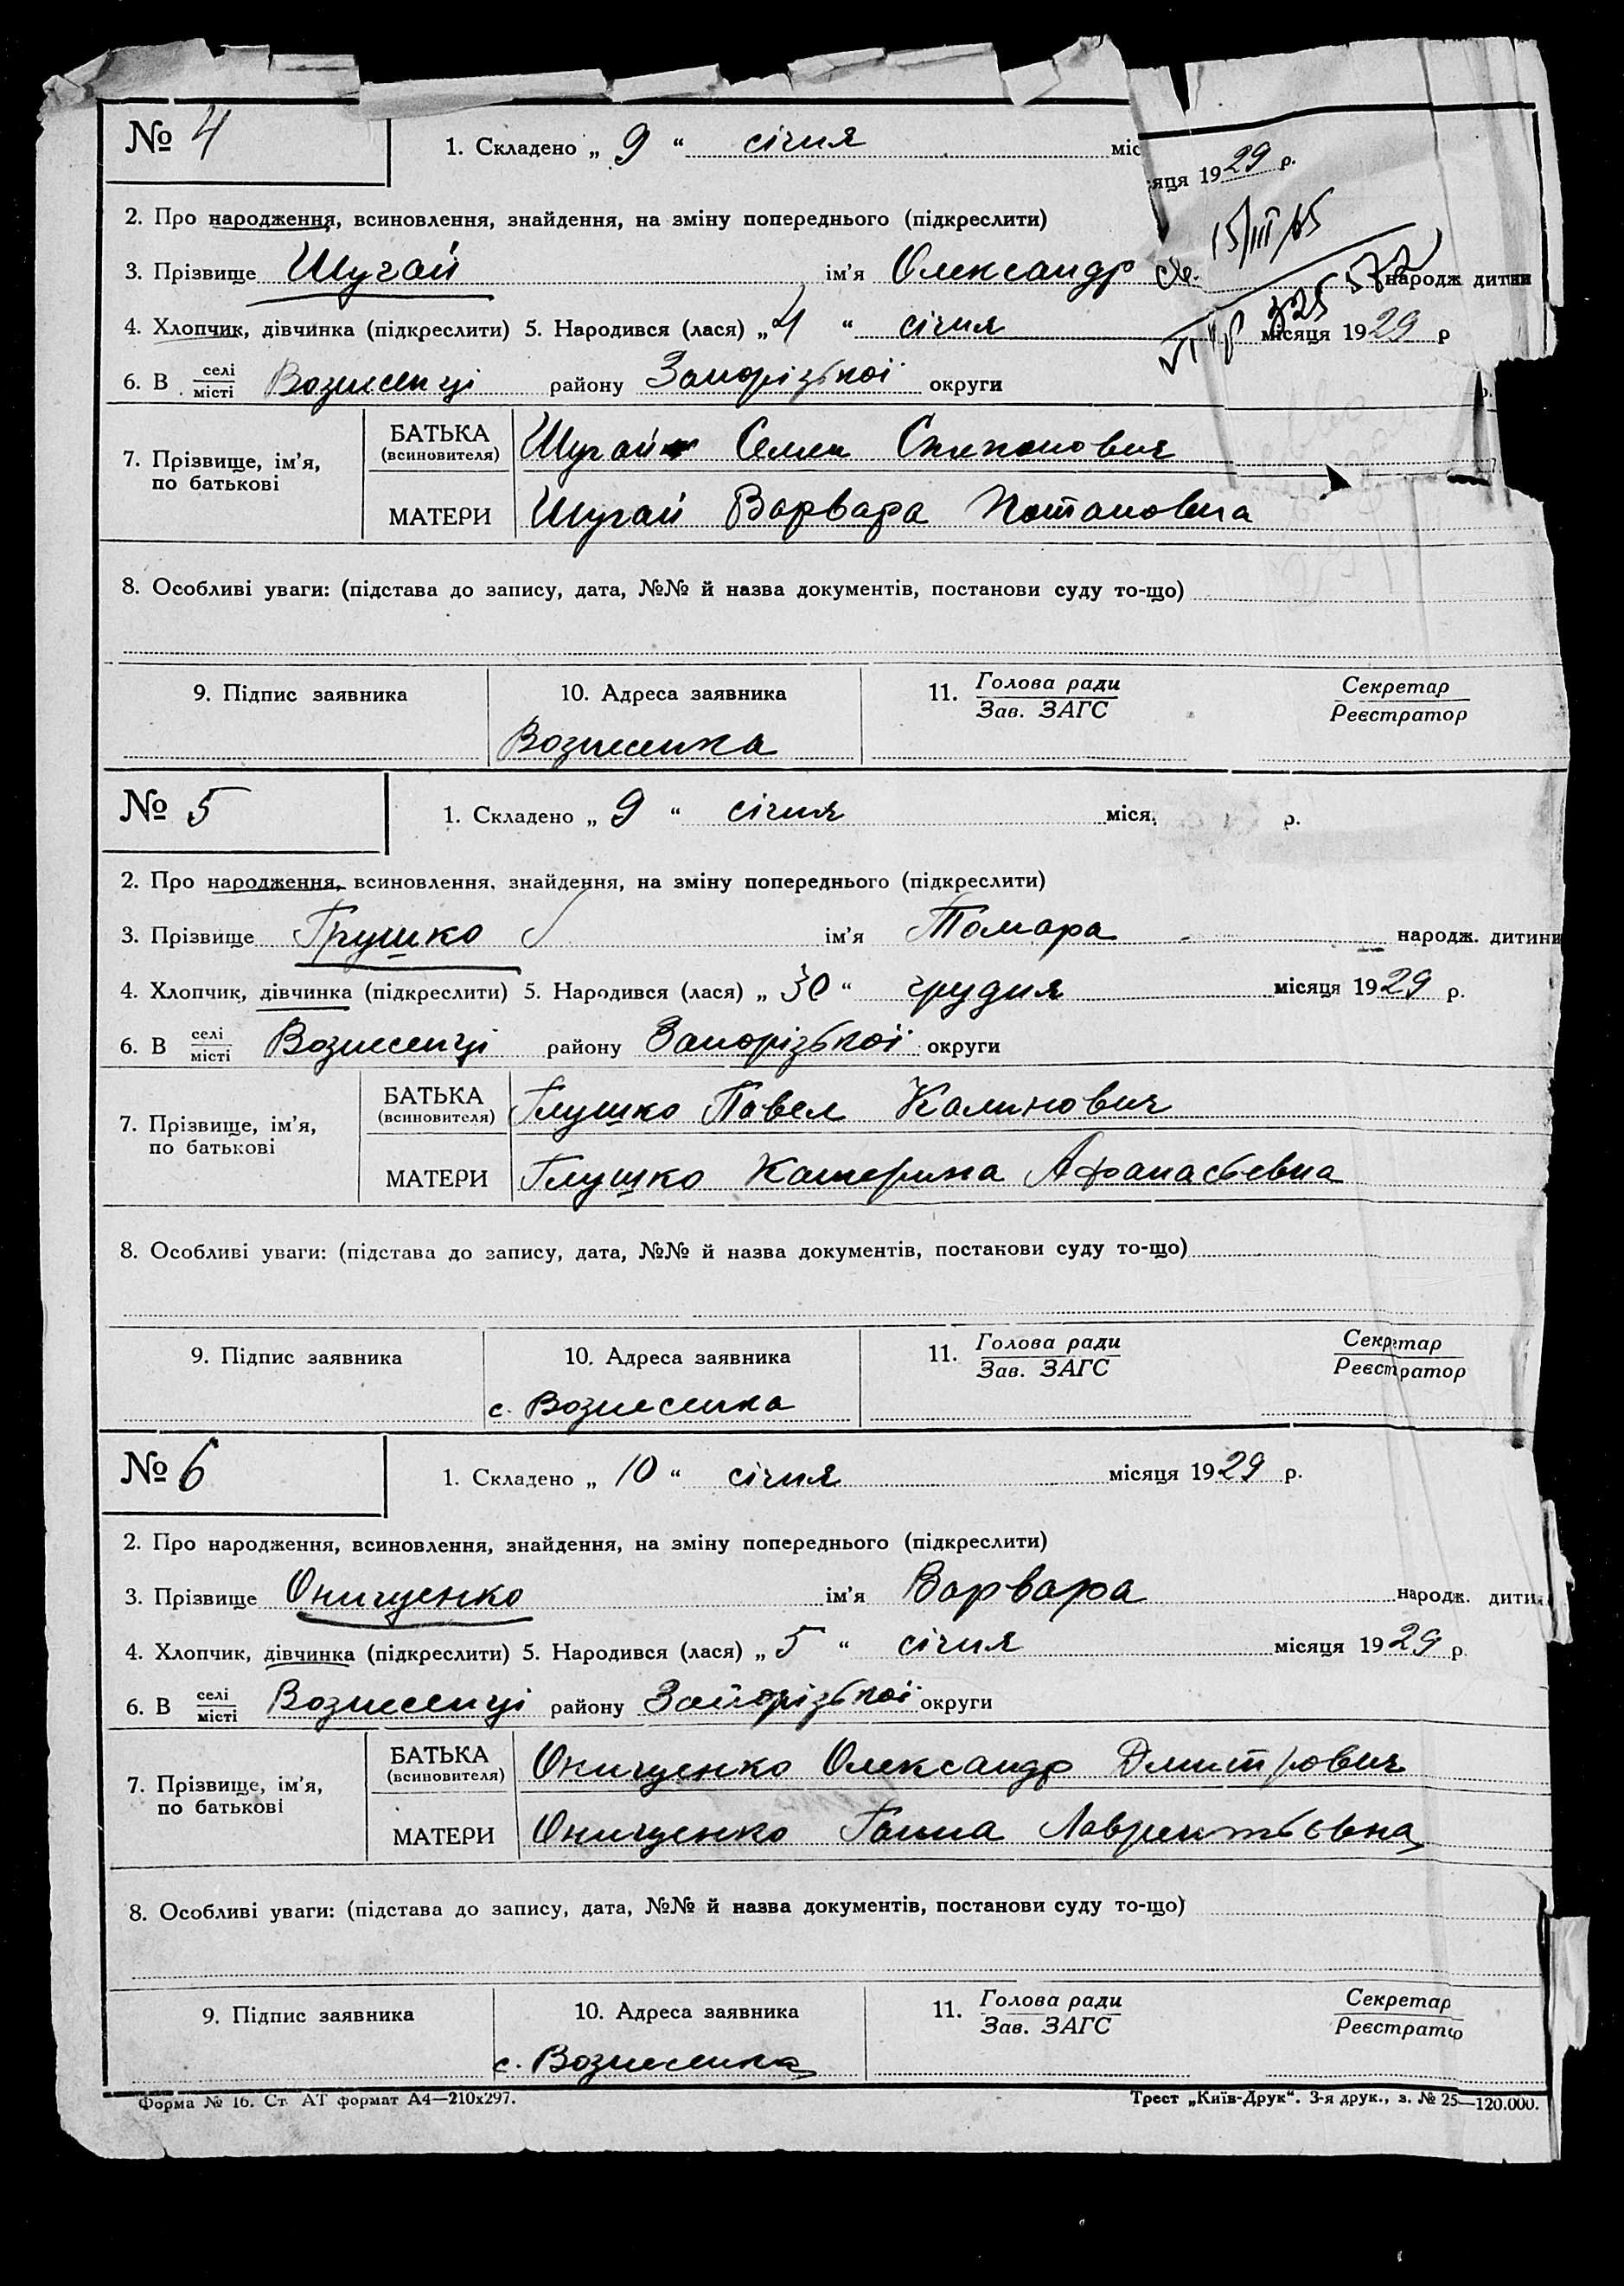 № 4
1. Складено „ 9 “ січня місяця 1929 р.
2. Про народження, всиновлення, знайдення, на зміну попереднього (підкреслити)
15/III/65
3. Прізвище Шугай ім’я Олександр народж дитини
4. Хлопчик, дівчинка (підкреслити) 5. Народився (лася) „ 4 “ січня місяця 1929 р
6. В селі/місті Вознесенці району Запорізької округи
7. Прізвище, ім’я, по батькові
БАТЬКА (всиновителя) Шугай Семен
МАТЕРИ Шугай Варвара Потаповна
8. Особливі уваги: (підстава до запису, дата, №№ й назва документів, постанови суду то-що)
9. Підпис заявника 10. Адреса заявника 11. Голова ради/Зав. ЗАГС Секретар/Реєстратор
Вознесенка
№ 5
1. Складено „ 9 “ січня міся. р.
2. Про народження, всиновлення, знайдення, на зміну попереднього (підкреслити)
3. Прізвище Грушко ім’я Томара народж. дитини
4. Хлопчик, дівчинка (підкреслити) 5. Народився (лася) „ 30 “ грудня місяця 1929 р.
6. В селі/місті Вознесенці району Запорізької округи
7. Прізвище, ім’я, по батькові
БАТЬКА (всиновителя) Глушко Павел Калинович
МАТЕРИ Глушко Катерина Афанасьевна
8. Особливі уваги: (підстава до запису, дата, №№ й назва документів, постанови суду то-що)
9. Підпис заявника 10. Адреса заявника 11. Голова ради/Зав. ЗАГС Секретар/Реєстратор
с. Вознесенка
№ 6
1. Складено „ 10 “ січня місяця 1929 р.
2. Про народження, всиновлення, знайдення, на зміну попереднього (підкреслити)
3. Прізвище Онищенко ім’я Варвара народж. дити
4. Хлопчик, дівчинка (підкреслити) 5. Народився (лася) „ 5 “ січня місяця 1929 р
6. В селі/місті Вознесенці району Запорізької округи
7. Прізвище, ім’я, по батькові
БАТЬКА (всиновителя) Онищенко Олександр Дмитрович
МАТЕРИ Онищенко Ганна Лаврентьевна
8. Особливі уваги: (підстава до запису, дата, №№ й назва документів, постанови суду то-що)
9. Підпис заявника 10. Адреса заявника 11. Голова ради/Зав. ЗАГС Секретар/Реєстратор
с. Вознесенка
Форма № 16. Ст. АТ формат А4—210х297. Трест „Київ-Друк“. 3-я друк., з. № 25—120.000.